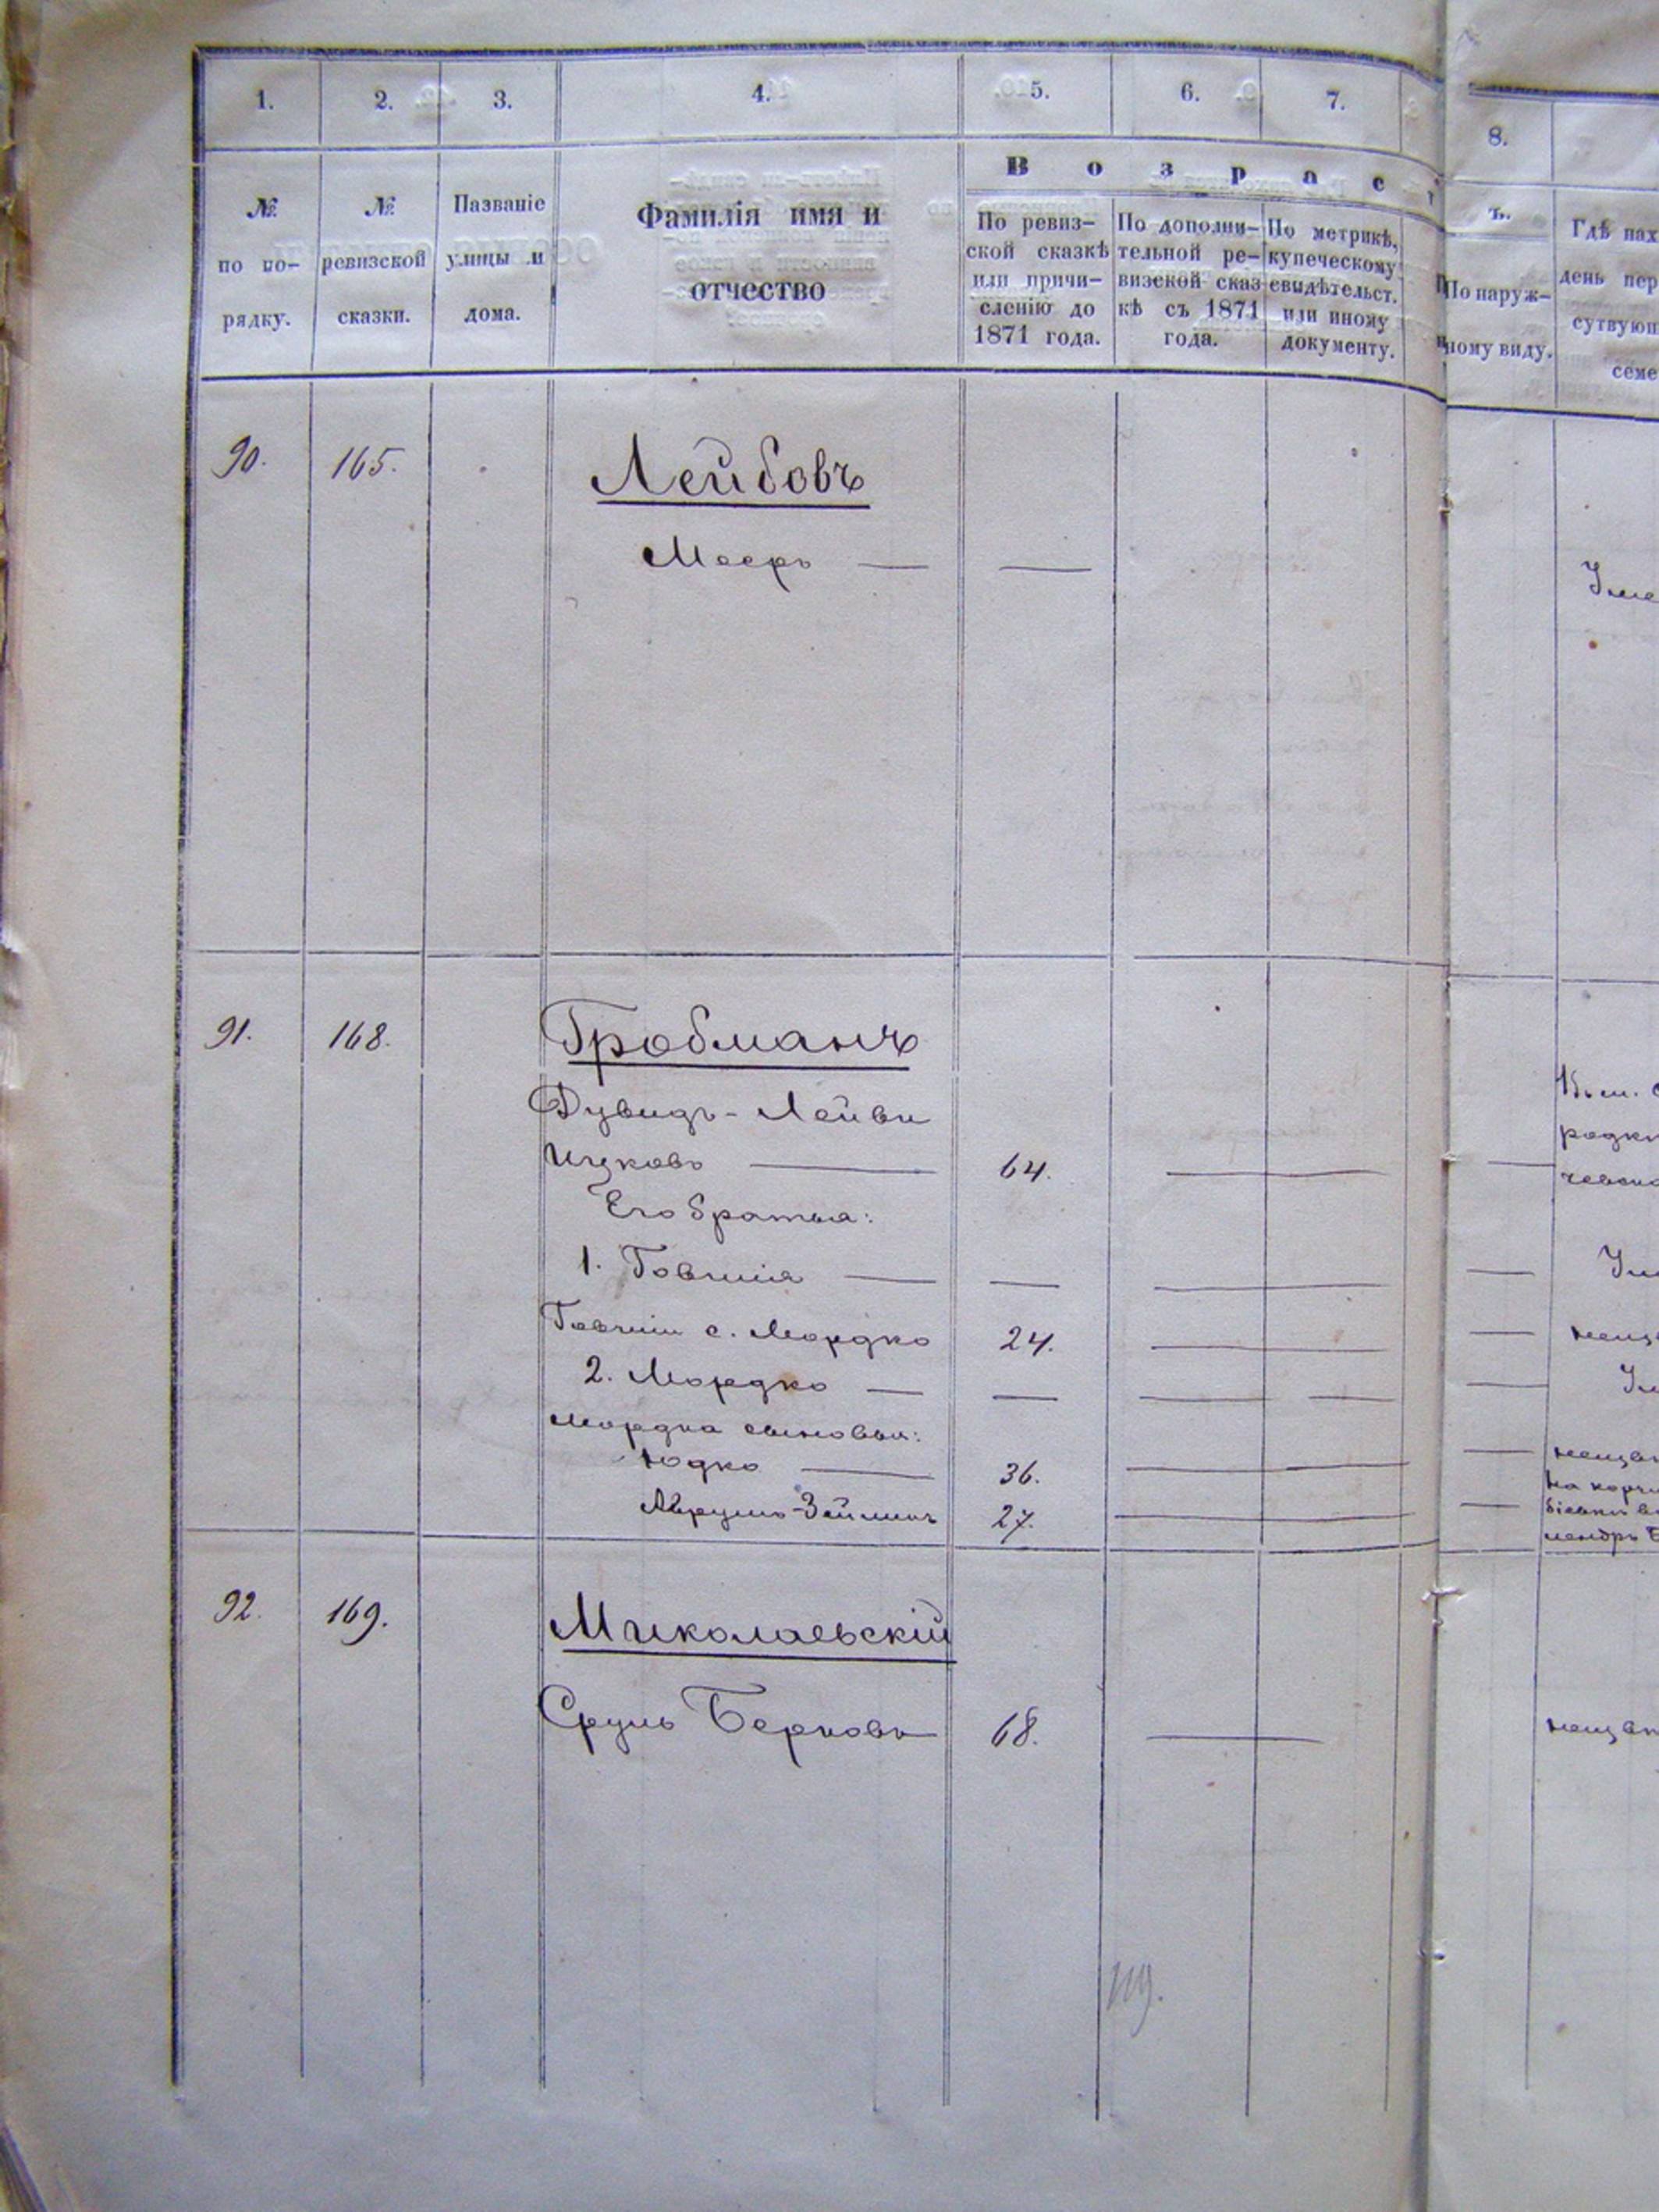 1. 2. 3. 4. 5. 6. 7. 8.
В о з р а с т ъ.
№ по по-
рядку.
№
ревизской
сказки.
Названіе
улицы и
дома.
Фамилія имя и
отчество
По ревиз-
ской сказкѣ
или причи-
сленію до
1871 года.
По дополни-
тельной ре-
визской сказ-
кѣ съ 1871
года.
По метрикѣ,
купеческому
свидѣтельст.
или иному
документу.
По наруж-
ному виду.
Гдѣ нах
день пер
сутвующ
семе
90. 165. Лейбовъ
Мееръ — —
Уме
91. 168. Гробманъ
Дувидъ-Лейби
Ицковъ — 64. —
Его братья:
1. Говшія — — —
Говшіи с. Мордко 24. —
2. Мордко — — — —
Мордка сыновья:
Юдко — 36. — —
Аврумъ-Зейликъ 27. —
92. 169. Миколаевскій
Сруль Берковъ 68. —
неизвѣ
119.